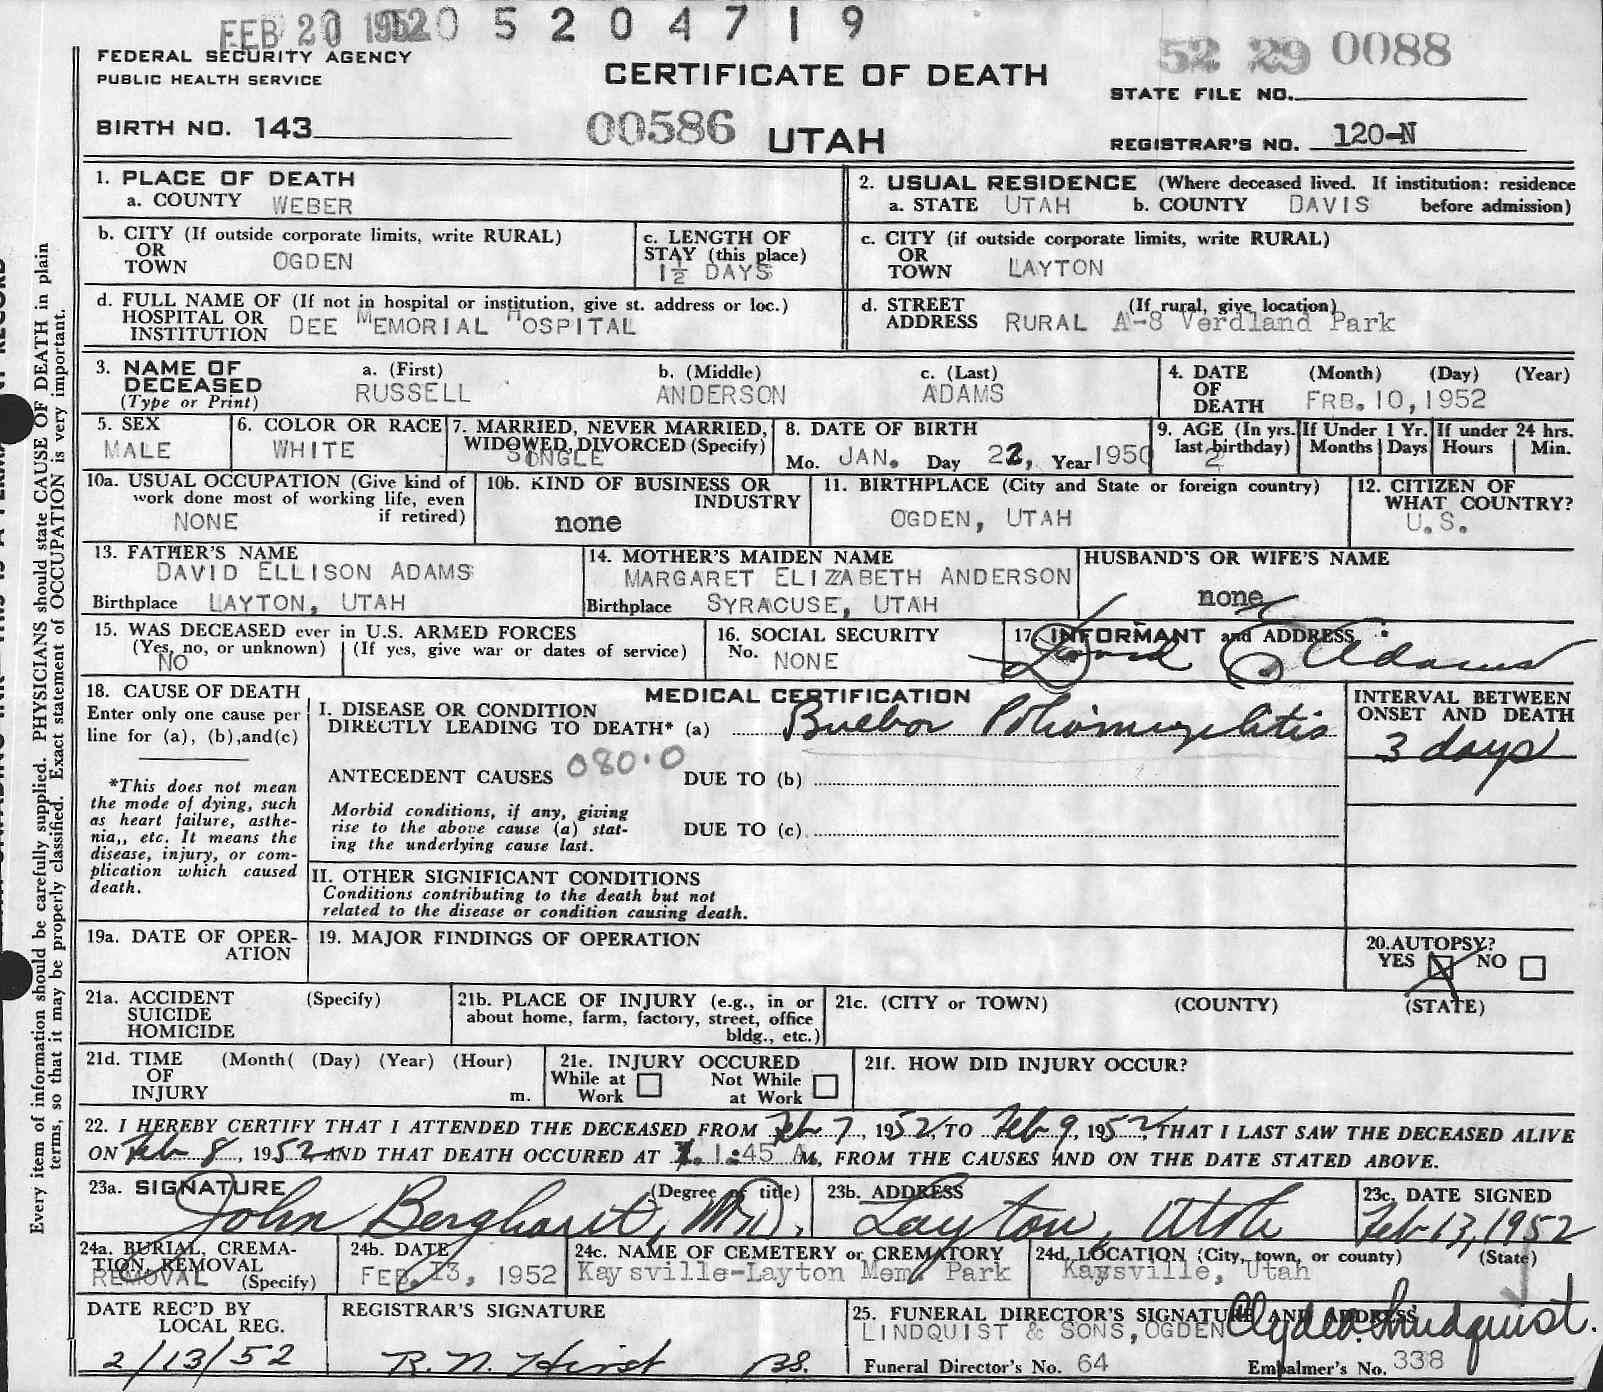 FEB 20 1952 0 5 2 0 4 7 1 9
FEDERAL SECURITY AGENCY
PUBLIC HEALTH SERVICE
CERTIFICATE OF DEATH
52 29 0088
STATE FILE NO.
BIRTH NO. 143
00586 UTAH
REGISTRAR'S NO. 120-N
1. PLACE OF DEATH
a. COUNTY WEBER
2. USUAL RESIDENCE (Where deceased lived. If institution: residence
a. STATE UTAH b. COUNTY DAVIS before admission)
b. CITY (If outside corporate limits, write RURAL)
OR
TOWN OGDEN
c. LENGTH OF
STAY (this place)
1½ DAYS
c. CITY (if outside corporate limits, write RURAL)
OR
TOWN LAYTON
d. FULL NAME OF (If not in hospital or institution, give st. address or loc.)
HOSPITAL OR
INSTITUTION DEE MEMORIAL HOSPITAL
d. STREET (If rural, give location)
ADDRESS RURAL A-8 Verdland Park
3. NAME OF
DECEASED
(Type or Print)
a. (First) b. (Middle) c. (Last)
RUSSELL ANDERSON ADAMS
4. DATE (Month) (Day) (Year)
OF
DEATH FRB. 10, 1952
5. SEX
MALE
6. COLOR OR RACE
WHITE
7. MARRIED, NEVER MARRIED,
WIDOWED, DIVORCED (Specify)
SONGLE
8. DATE OF BIRTH
Mo. JAN. Day 22, Year 1950
9. AGE (In yrs. If Under 1 Yr. If under 24 hrs.
last birthday) Months Days Hours Min.
2
10a. USUAL OCCUPATION (Give kind of
work done most of working life, even
NONE if retired)
10b. KIND OF BUSINESS OR
INDUSTRY
none
11. BIRTHPLACE (City and State or foreign country)
OGDEN, UTAH
12. CITIZEN OF
WHAT COUNTRY?
U.S.
13. FATHER'S NAME
DAVID ELLISON ADAMS
Birthplace LAYTON, UTAH
14. MOTHER'S MAIDEN NAME
MARGARET ELIZABETH ANDERSON
Birthplace SYRACUSE, UTAH
HUSBAND'S OR WIFE'S NAME
none
15. WAS DECEASED ever in U.S. ARMED FORCES
(Yes, no, or unknown) (If yes, give war or dates of service)
NO
16. SOCIAL SECURITY
No. NONE
17. INFORMANT and ADDRESS
David E Adams
18. CAUSE OF DEATH
Enter only one cause per
line for (a), (b),and(c)
*This does not mean
the mode of dying, such
as heart failure, asthe-
nia,, etc. It means the
disease, injury, or com-
plication which caused
death.
MEDICAL CERTIFICATION
I. DISEASE OR CONDITION
DIRECTLY LEADING TO DEATH* (a) Bulbar Poliomyelitis
ANTECEDENT CAUSES 080.0 DUE TO (b)
Morbid conditions, if any, giving
rise to the above cause (a) stat-
ing the underlying cause last.
DUE TO (c)
II. OTHER SIGNIFICANT CONDITIONS
Conditions contributing to the death but not
related to the disease or condition causing death.
INTERVAL BETWEEN
ONSET AND DEATH
3 days
19a. DATE OF OPER-
ATION
19. MAJOR FINDINGS OF OPERATION
20.AUTOPSY?
YES NO
21a. ACCIDENT (Specify)
SUICIDE
HOMICIDE
21b. PLACE OF INJURY (e.g., in or
about home, farm, factory, street, office
bldg., etc.)
21c. (CITY or TOWN) (COUNTY) (STATE)
21d. TIME (Month( (Day) (Year) (Hour)
OF
INJURY m.
21e. INJURY OCCURED
While at Work Not While at Work
21f. HOW DID INJURY OCCUR?
22. I HEREBY CERTIFY THAT I ATTENDED THE DECEASED FROM Feb 7, 1952, TO Feb 9, 1952, THAT I LAST SAW THE DECEASED ALIVE
ON Feb 8, 1952 AND THAT DEATH OCCURED AT 1:45 A M, FROM THE CAUSES AND ON THE DATE STATED ABOVE.
23a. SIGNATURE (Degree or title)
John Berghart, M.D.
23b. ADDRESS
Layton, Utah
23c. DATE SIGNED
Feb 13, 1952
24a. BURIAL, CREMA-
TION, REMOVAL
REMOVAL (Specify)
24b. DATE
FEB. 13, 1952
24c. NAME OF CEMETERY or CREMATORY
Kaysville-Layton Mem. Park
24d. LOCATION (City, town, or county) (State)
Kaysville, Utah
DATE REC'D BY
LOCAL REG.
2/13/52
REGISTRAR'S SIGNATURE
R. N. Hirst BS.
25. FUNERAL DIRECTOR'S SIGNATURE AND ADDRESS
LINDQUIST & SONS, OGDEN Clyde Lindquist.
Funeral Director's No. 64 Embalmer's No. 338
Every item of information should be carefully supplied. PHYSICIANS should state CAUSE OF DEATH in plain
terms, so that it may be properly classified. Exact statement of OCCUPATION is very important.